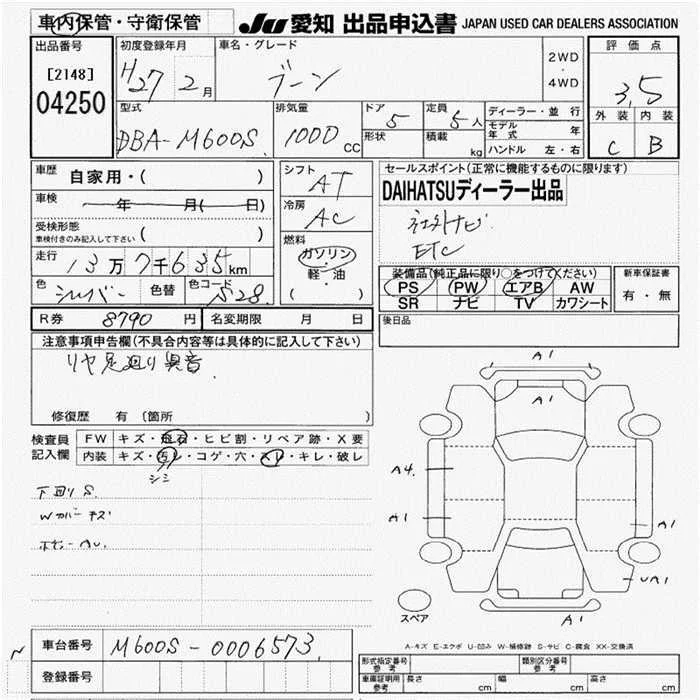 車内保管・守衛保管
JU 愛知 出品申込書 JAPAN USED CAR DEALERS ASSOCIATION
出品番号
[2148]
04250
初度登録年月
H27 2月
車名・グレード
ブーン
2WD
・
4WD
評価点
3.5
外装 内装
C B
型式
DBA-M600S
排気量
1000 CC
ドア
5
形状
定員
5人
積載
kg
ディーラー・並行
モデル年式 年
ハンドル 左・右
車歴
自家用・( )
車検
年 月( 日)
受検形態
車検付きのみ記入して下さい ( )
走行
13万7千635km
色
シルバー
色替
色コード
S28
シフト
AT
冷房
AC
燃料
ガソリン
・
軽・油
( )
セールスポイント(正常に機能するものに限ります)
DAIHATSUディーラー出品
社外ナビ
ETC
装備品(純正品に限り○をつけてください)
PS PW エアB AW
SR ナビ TV カワシート
新車保証書
有・無
R券 8790円
名変期限 月 日
後日品
注意事項申告欄(不具合内容等は具体的に記入して下さい)
リヤ足廻り異音
修復歴 有 (箇所 )
検査員記入欄
FW キズ・飛石・ヒビ割・リペア跡・X要
内装 キズ・汚レ・コゲ・穴・スレ・キレ・破レ
シミ
下回りS.
Wカバーキズ
ボデーAU.
A1
A1
A4.
A1
A1
UA1
A1
スペア
A-キズ E-エクボ U-凹み W-補修跡 S-サビ C-腐食 XX-交換済
車台番号 M600S-0006573
登録番号
形式指定番号 参考
類別区分番号 参考
車庫証明用 参考 長さ cm 幅 cm 高さ cm